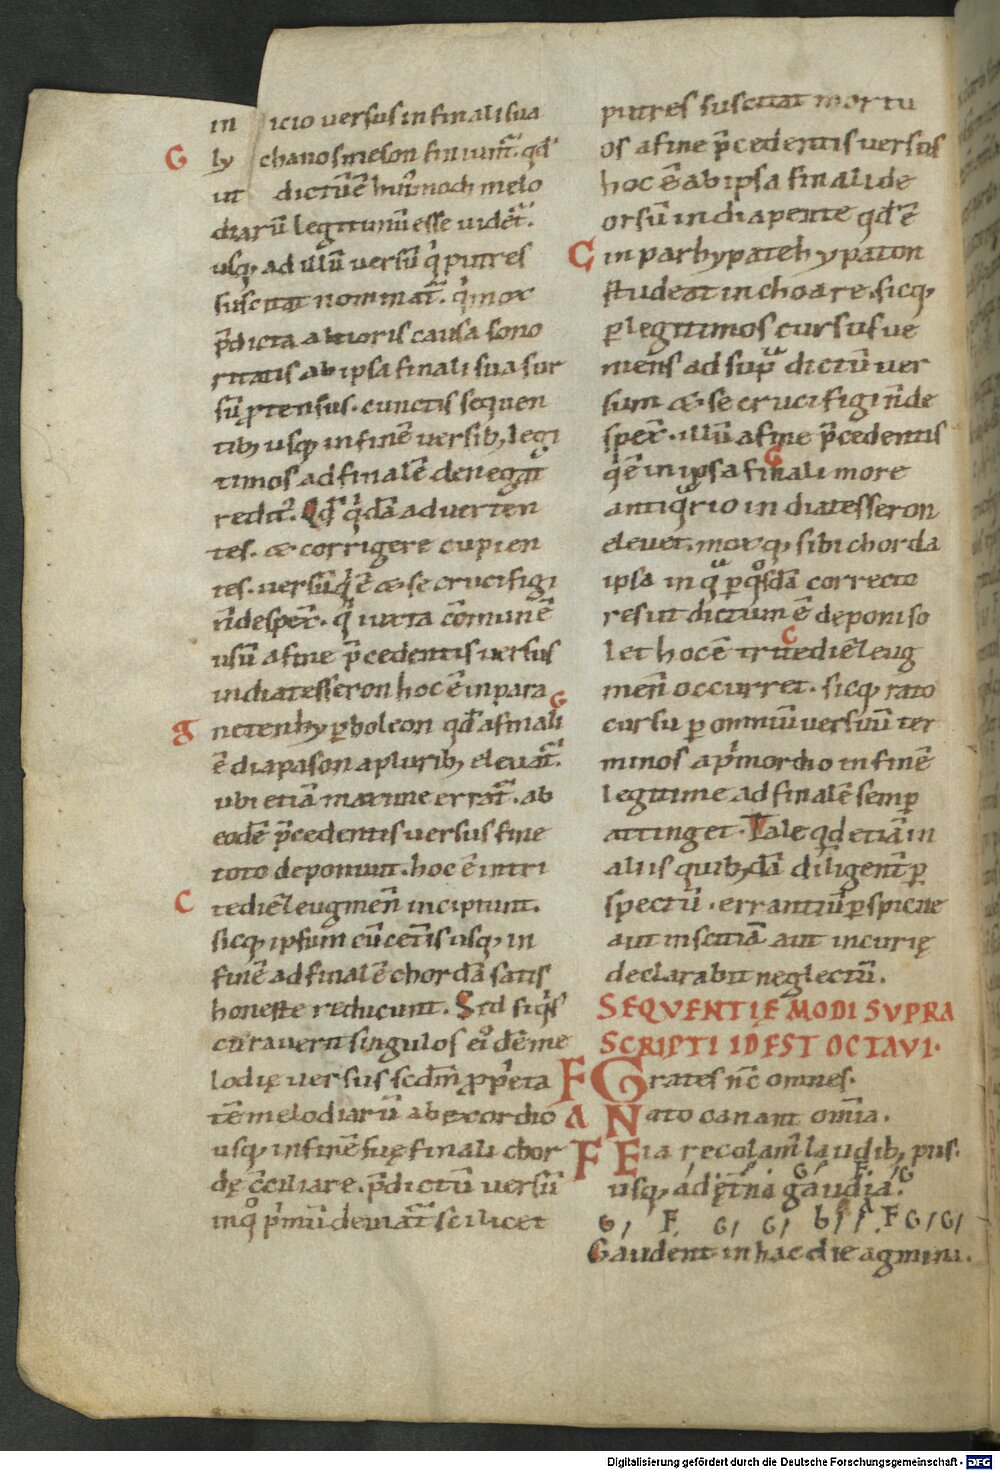 in icio versus in finali sua
G ly chanos meson finiunt̄. qđ
ut dictū ē hui᷒modi melo
diarū legitimū esse videt᷑.
usq; ad illū versū q̇ putres
suscitat nominat᷑. q̇ mox
p̄dicta altioris causa sono
ritatis ab ipsa finali sua sur
sū ꝓtensus. cunctis sequen
tib; usq; in finē versib; legi
timos ad finalē denegat
redit᷒. Qđ q̇dā adverten
tes. & corrigere cupien
tes. versū q̇ ē & se crucifigi
ñ despex̄. q̇ iuxta cōmunē
usū a fine p̄cedentis versus
in diatesseron hoc ē in para
G
g neten hyꝑboleon qđ a finali
ē diapason a plurib; elevat᷑.
ubi etiā maxime errat᷑. ab
eodē p̄cedentis versus fine
toto deponunt. hoc ē in tri
C tediēleugmeñ incipiunt.
sicq; ipsum cū cet̄is usq; in
finē ad finalē chordā satis
honeste reducunt. Sed siq̇s
curaverit singulos ei᷒dē me
lodię versus scđm ꝓp̄eta
tē melodiarū ab exordio
usq; in finē suę finali chor
dę c̄ciliare. p̄dictū versū
in qͦ p̍mū deviat᷑ scilicet
putres suscitat mortu
os a fine p̄cedentis versus
hoc ē ab ipsa finali de
orsū in diapente qđ ē
C in parhypate hypaton
studeat inchoare. sicq;
ꝑ legitimos cursus ve
niens ad supͣ dictū ver
sum & se crucifigi ñ de
spex̄. illū a fine p̄cedentis
G
q̇ ē in ipsa finali more
antiqͣrio in diatesseron
elevet. mox q; sibi chorda
ipsa in qͣ ꝑ qͦsdā correcto
res ut dictum ē deponi so
C
let hoc ē trite diēleug
meñ occurret. sicq; rato
cursu ꝑ omniū versuū ter
minos a p̍mordio in finē
legitime ad finalē semꝑ
attinget. Tale qđ etiā in
aliis quib;dā diligent̄ ꝑ
spectū. errantiū ꝑspicue
aut inscitiā aut incurię
declarabit neglectū.
SEQVENTIE MODI SVPRA
SCRIPTI ID EST OCTAVI.
F Grates ñc omnes.
A Nato canant om̄ia.
F Eia recolam᷒ laudib; pus.
usq; ad ęt̄na gaudia.
Gaudent in hac die agmina.